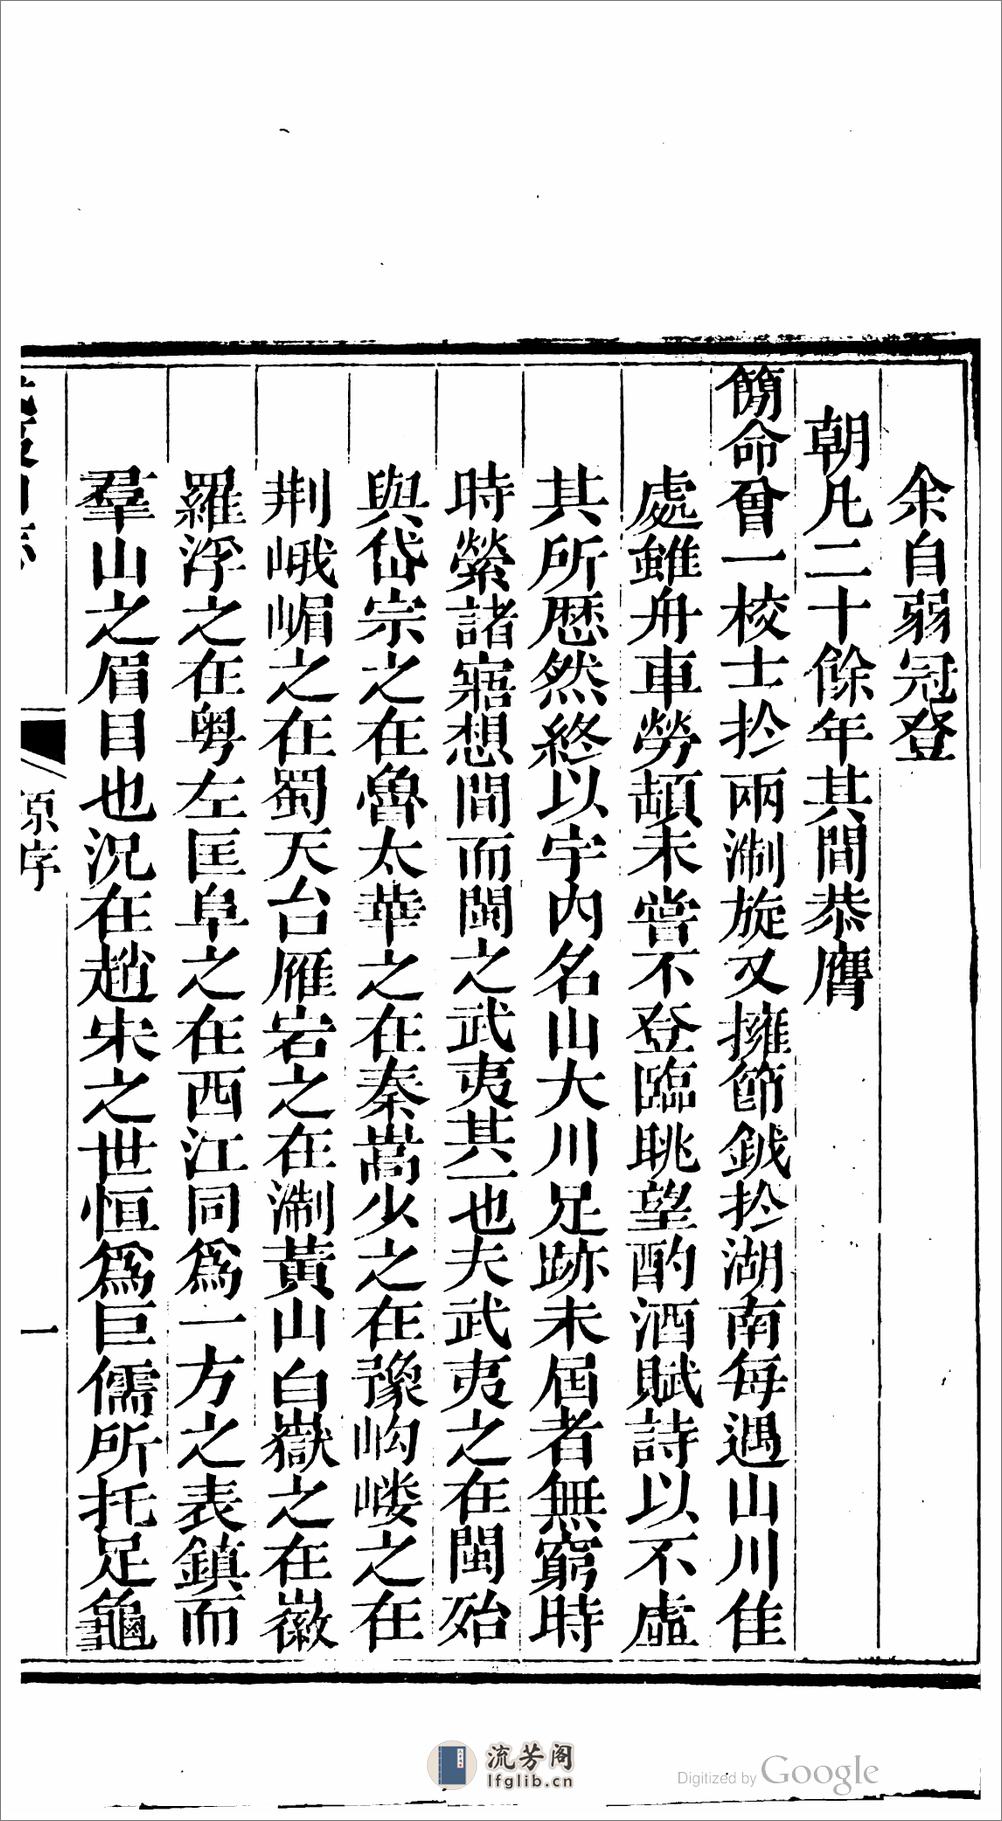 余自弱冠登
朝凡二十餘年其間恭膺
簡命曾一校士扵兩淛旋又擁節鉞扵湖南每遇山川佳
處雖舟車勞頓未嘗不登臨眺望酌酒賦詩以不虛
其所歷然終以宇內名山大川足跡未屆者無窮時
時縈諸寤想間而閩之武夷其一也夫武夷之在閩殆
與岱宗之在魯太華之在秦嵩少之在豫岣嶁之在
荆峨嵋之在蜀天台雁宕之在淛黃山白嶽之在徽
羅浮之在粤左匡阜之在西江同為一方之表鎮而
羣山之眉目也況在趙宋之世恒為巨儒所托足龜
原序
一
流芳阁
lfglib.cn
Digitized by Google